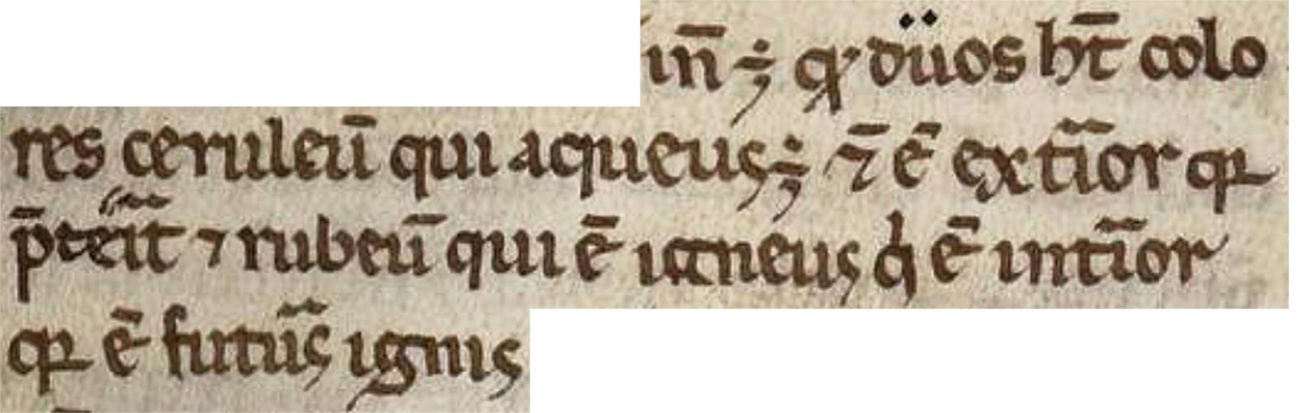 in̄ ÷ qꝫ duos hт̄ colo
res ceruleū qui aqueus ÷ ⁊ ē extīor qꝛ
p̄teīīt ⁊ rubeū qui ē igneus q̇ ē intīor
qꝛ ē futūs ignis